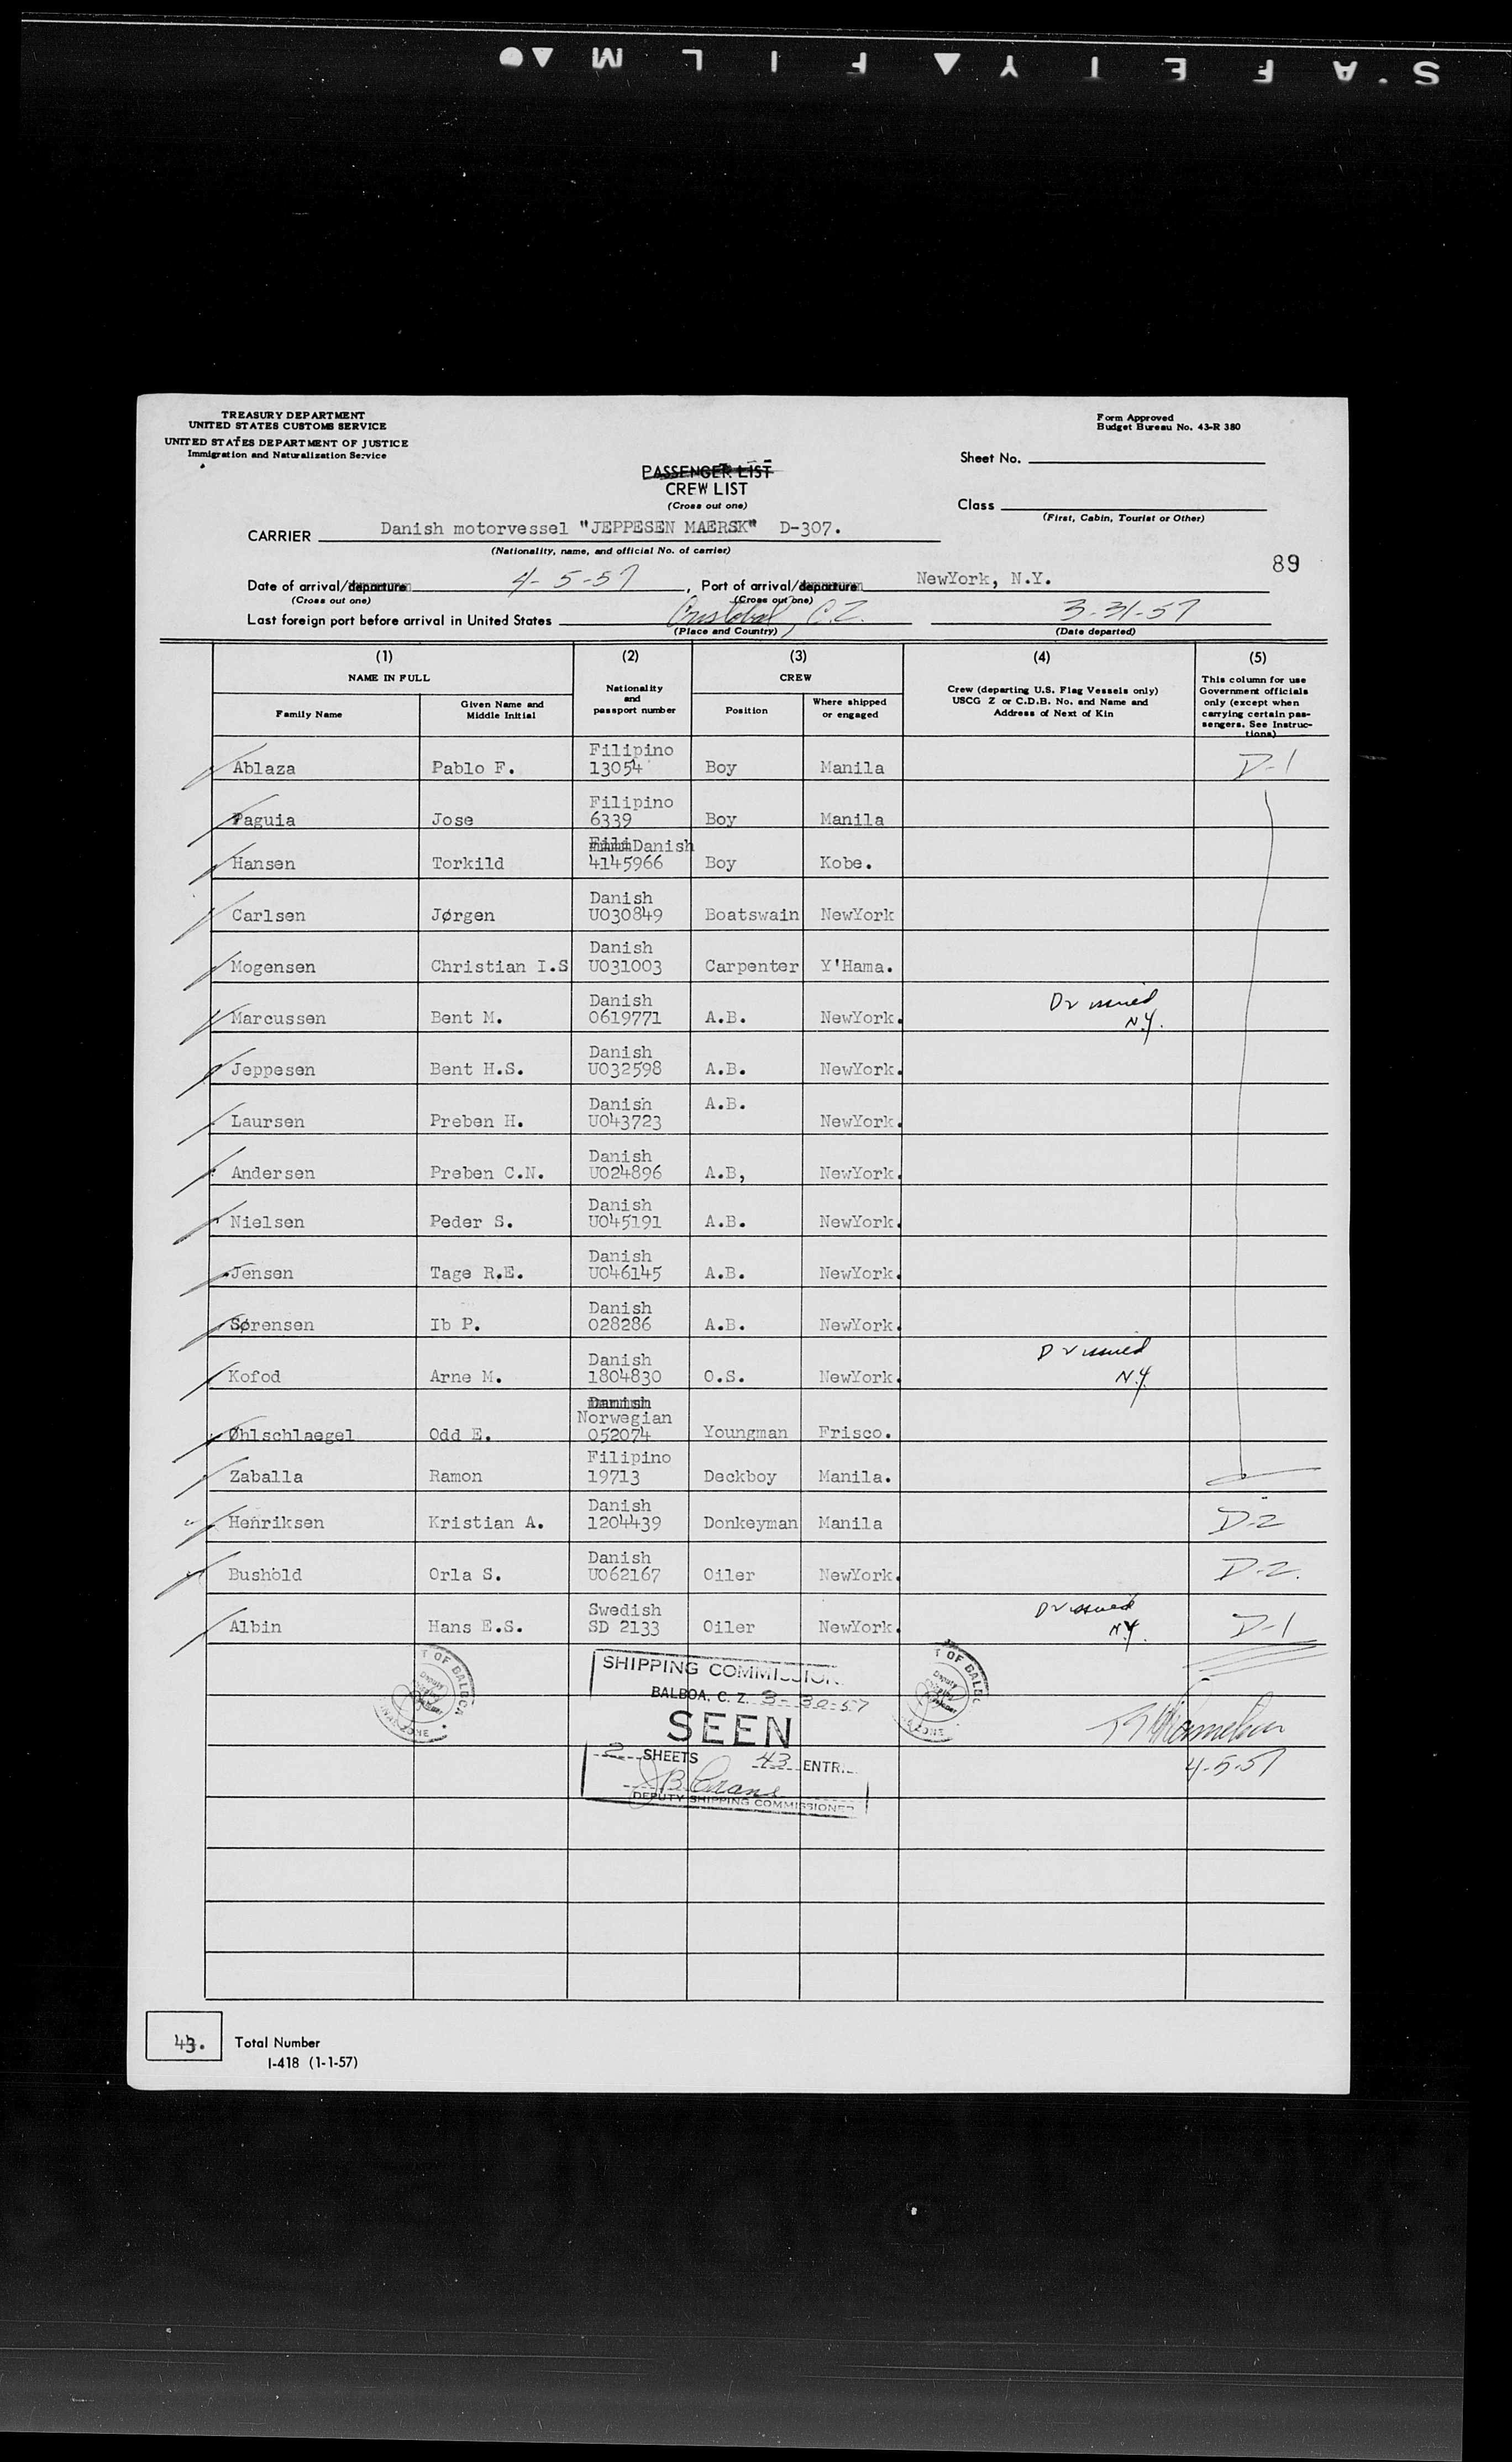 S.AFETY▲FILM▲●
TREASURY DEPARTMENT
UNITED STATES CUSTOMS SERVICE
UNITED STATES DEPARTMENT OF JUSTICE
Immigration and Naturalization Service
Form Approved
Budget Bureau No. 43-R 380
Sheet No.
PASSENGER LIST
CREW LIST
(Cross out one)
Class
(First, Cabin, Tourist or Other)
CARRIER Danish motorvessel "JEPPESEN MAERSK" D-307.
(Nationality, name, and official No. of carrier)
89
Date of arrival/departure 4-5-57, Port of arrival/departure NewYork, N.Y.
(Cross out one) (Cross out one)
Last foreign port before arrival in United States Cristobal, C.Z. 3-31-57
(Place and Country) (Date departed)
(1) (2) (3) (4) (5)
NAME IN FULL
Family Name
Given Name and
Middle Initial
Nationality
and
passport number
CREW
Position
Where shipped
or engaged
Crew (departing U.S. Flag Vessels only)
USCG Z or C.D.B. No. and Name and
Address of Next of Kin
This column for use
Government officials
only (except when
carrying certain pas-
sengers. See Instruc-
tions)
Filipino
Ablaza Pablo F. 13054 Boy Manila D-1
Filipino
Paguia Jose 6339 Boy Manila
Fili Danish
Hansen Torkild 4145966 Boy Kobe.
Danish
Carlsen Jørgen U030849 Boatswain NewYork
Danish
Mogensen Christian I.S U031003 Carpenter Y'Hama.
Danish Dr issued
Marcussen Bent M. 0619771 A.B. NewYork. N.Y.
Danish
Jeppesen Bent H.S. U032598 A.B. NewYork.
Danish A.B.
Laursen Preben H. U043723 NewYork.
Danish
Andersen Preben C.N. U024896 A.B, NewYork.
Danish
Nielsen Peder S. U045191 A.B. NewYork.
Danish
Jensen Tage R.E. U046145 A.B. NewYork.
Danish
Sørensen Ib P. 028286 A.B. NewYork.
Danish Dr issued
Kofod Arne M. 1804830 O.S. NewYork. N.Y.
Danish
Norwegian
Øhlschlaegel Odd E. 052074 Youngman Frisco.
Filipino
Zaballa Ramon 19713 Deckboy Manila.
Danish
Henriksen Kristian A. 1204439 Donkeyman Manila D-2
Danish
Bushold Orla S. U062167 Oiler NewYork. D-2.
Swedish Dr issued
Albin Hans E.S. SD 2133 Oiler NewYork. N.Y. D-1
T OF BALBOA
Deputy
T OF BALBO
Deputy
SHIPPING COMMISSION
BALBOA, C. Z. 3-30-57
SEEN
2 SHEETS 43 ENTR.
J B Crane
DEPUTY SHIPPING COMMISSIONER
4-5-57
43. Total Number
I-418 (1-1-57)